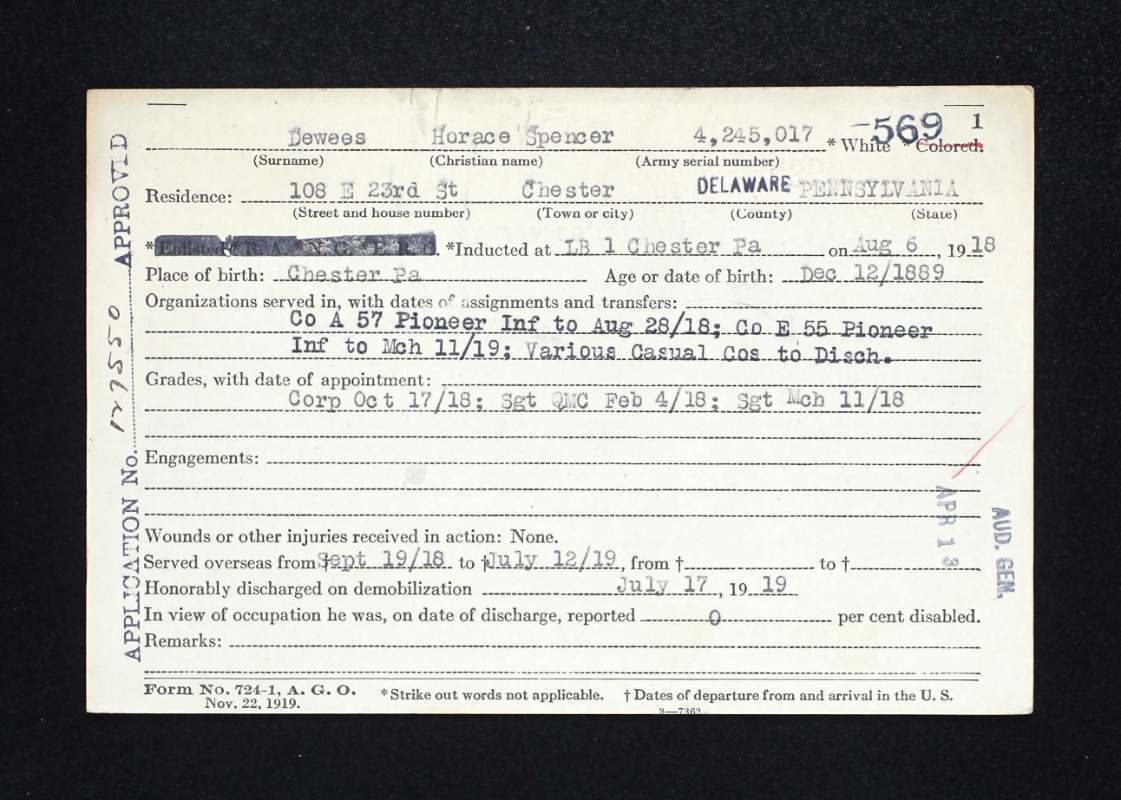 Dewees Horace Spencer 4,245,017 * White * Colored. -569 1
(Surname) (Christian name) (Army serial number)
Residence: 108 E 23rd St Chester DELAWARE PENNSYLVANIA
(Street and house number) (Town or city) (County) (State)
*Enlisted R. A. N. G. E. R. C. *Inducted at LB 1 Chester Pa on Aug 6, 1918
Place of birth: Chester Pa Age or date of birth: Dec 12/1889
Organizations served in, with dates of assignments and transfers:
Co A 57 Pioneer Inf to Aug 28/18; Co E 55 Pioneer
Inf to Mch 11/19; Various Casual Cos to Disch.
Grades, with date of appointment:
Corp Oct 17/18; Sgt QMC Feb 4/18; Sgt Mch 11/18
Engagements:
Wounds or other injuries received in action: None.
Served overseas from †Sept 19/18 to †July 12/19, from † to †
Honorably discharged on demobilization July 17, 1919
In view of occupation he was, on date of discharge, reported 0 per cent disabled.
Remarks:
Form No. 724-1, A. G. O. *Strike out words not applicable. † Dates of departure from and arrival in the U. S.
Nov. 22, 1919. 3—7362
APPLICATION No. 127550 APPROVED
APR 13
AUD. GEN.